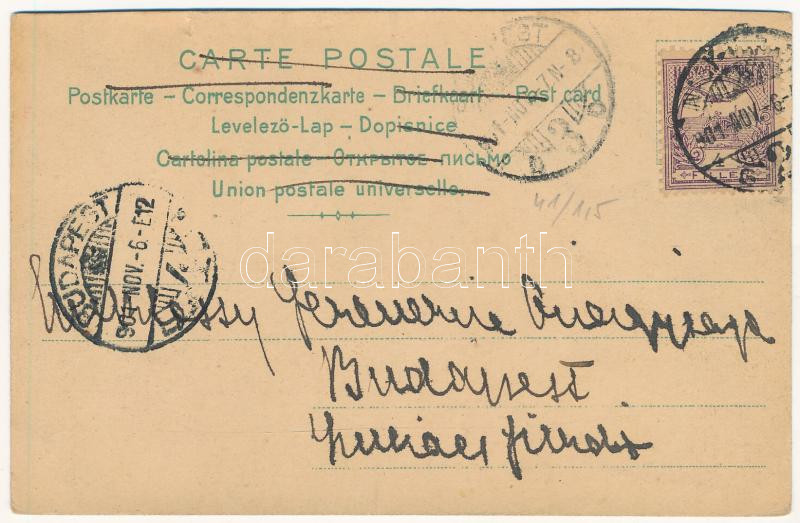 CARTE POSTALE
Postkarte – Correspondenzkarte – Briefkaart – Post card
Levelező-Lap – Dopisnice
Cartolina postale – Открытое письмо
Union postale universelle.
BUDAPEST
901 NOV. -6. E12
901 NOV -6
FILLÉR
41/115
darabanth
Ferencné Őnagysága
Budapest